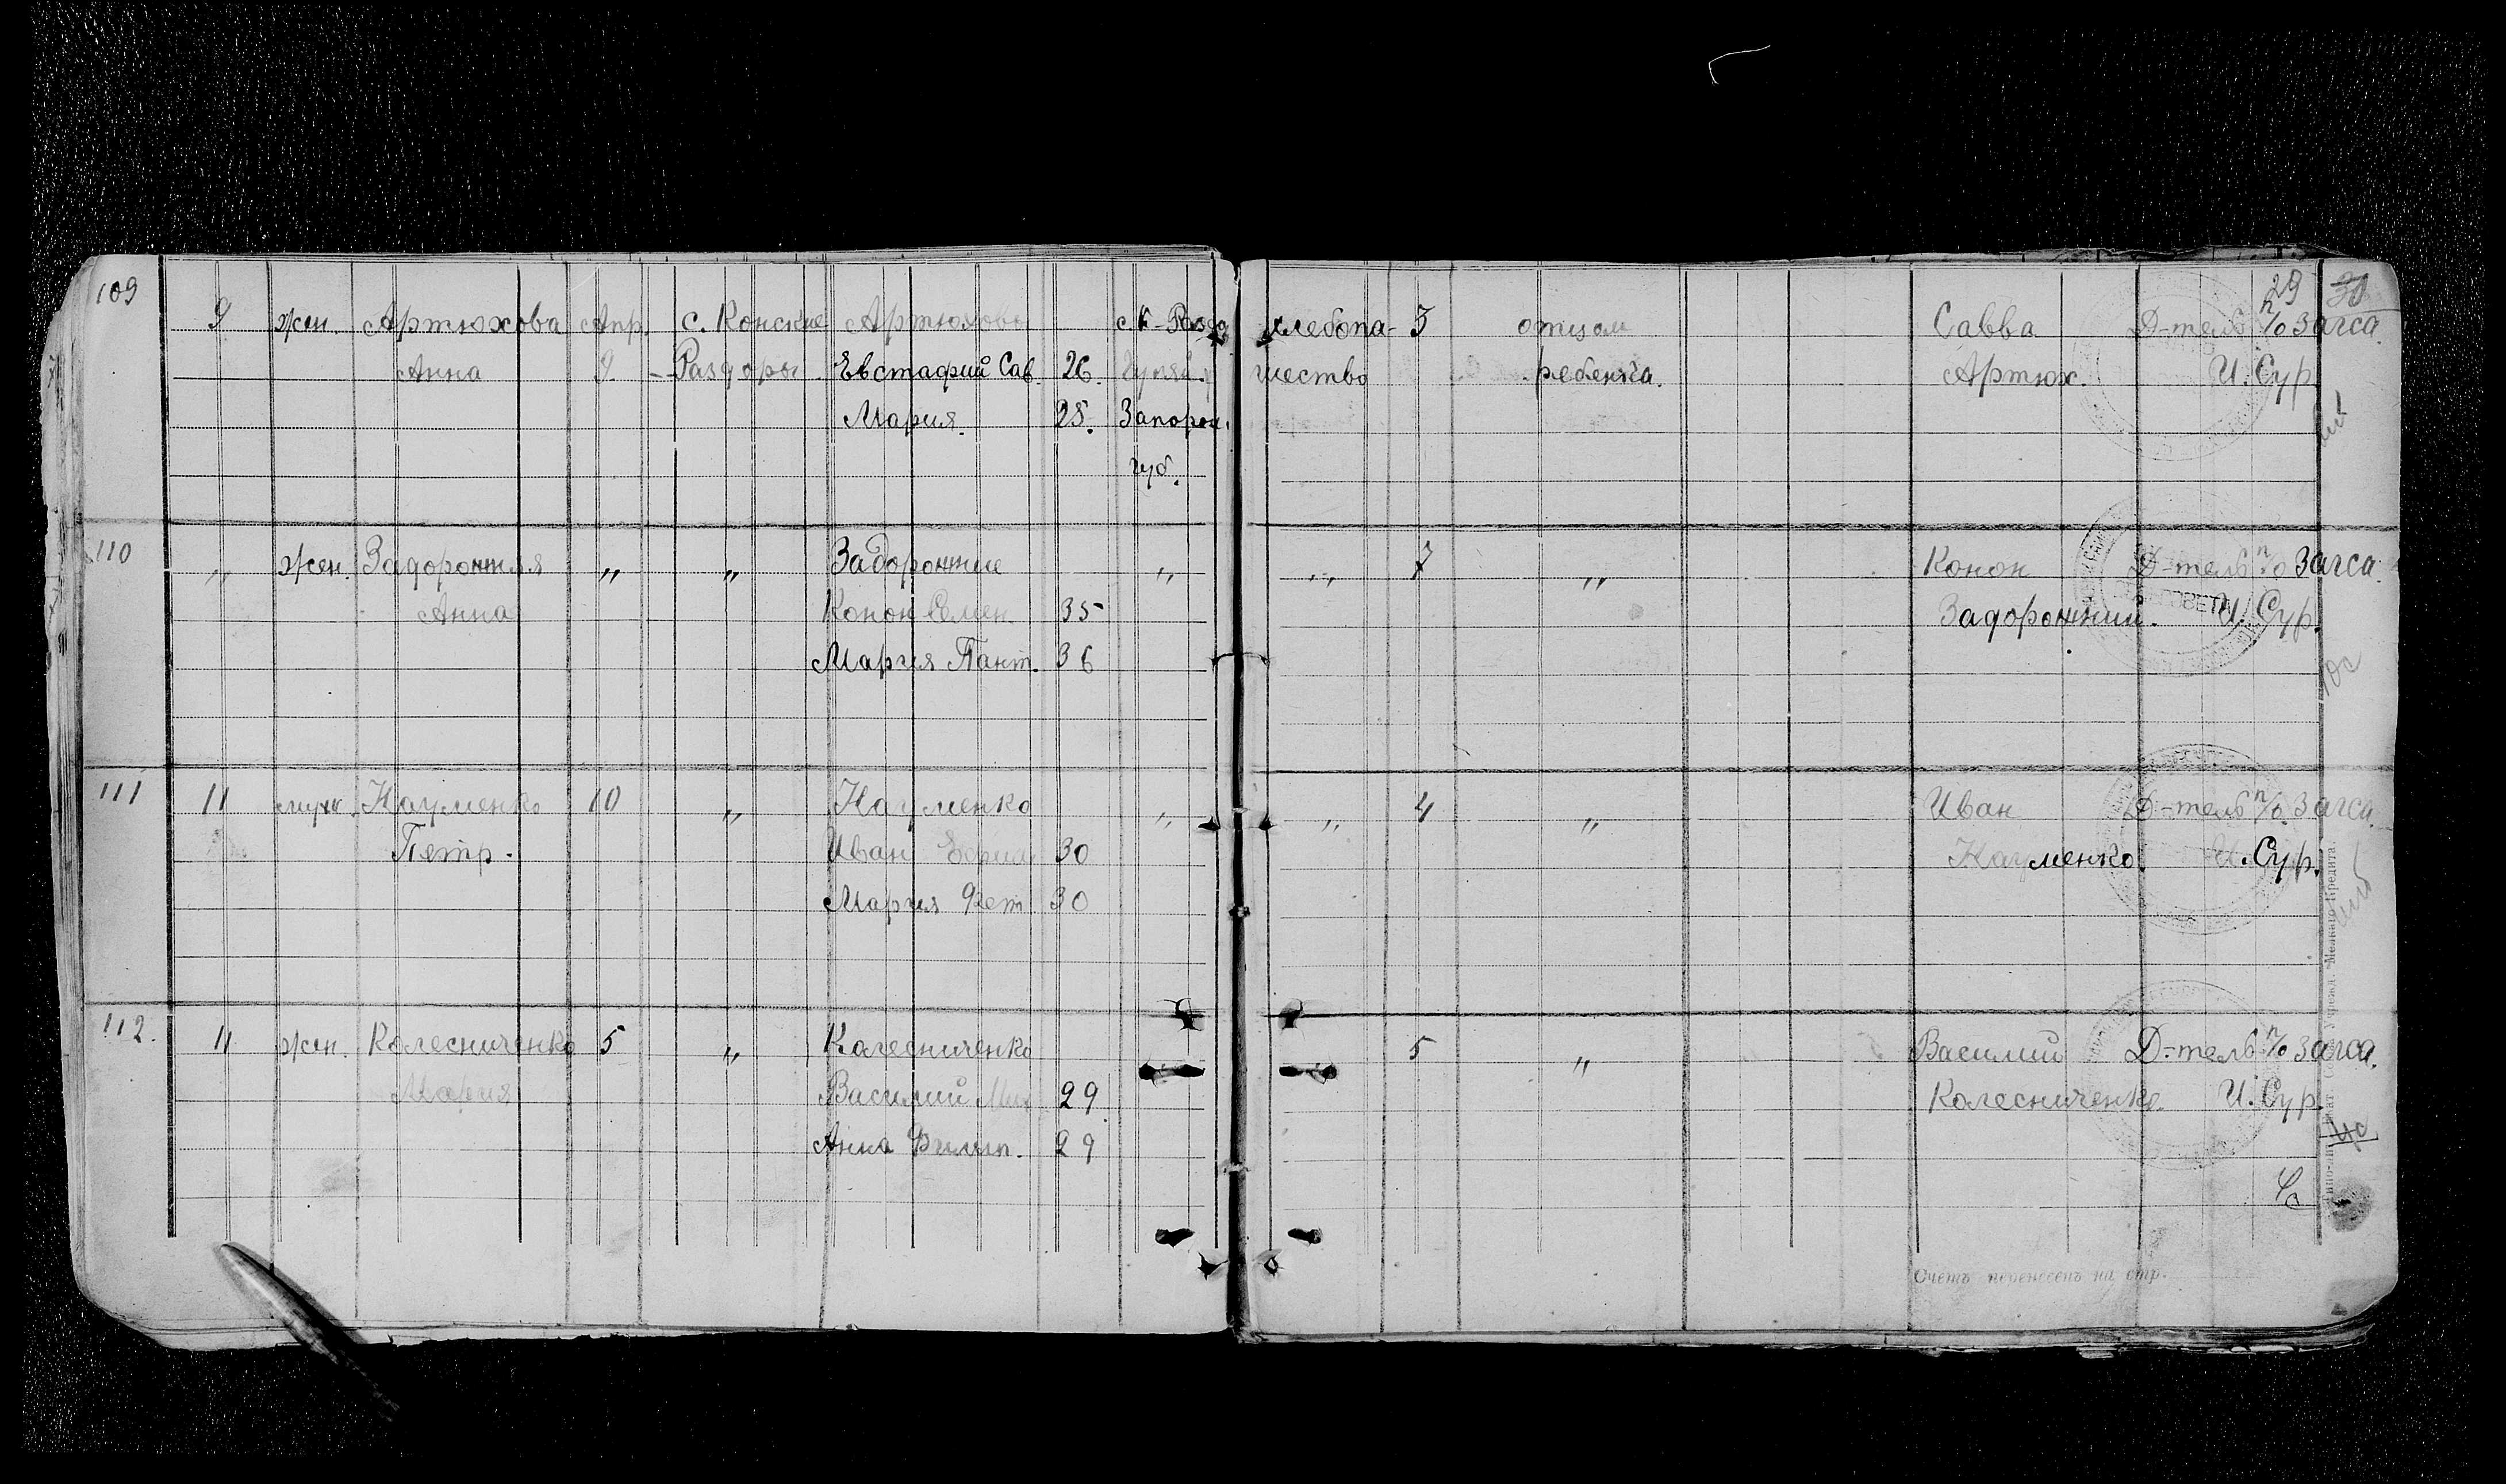 29 30
109
9 жен. Артюхова Апр. с. Конские Артюхова с К-Разд хлебопа- 3 отцом Савва Д-тель п/о Загса.
Анна 9 -Раздоры Евстафий Сав. 26. Гуляй. шество ребенка. Артюх. И. Сур.
Мария. 28. Запорож.
губ.
110
„ жен. Задорожняя „ „ Задорожние „ „ 7 „ Конон Д-тель п/о Загса.
Анна Конон Семен. 35 Задорожний. И. Сур.
Мария Пант. 36
111 11 муж. Науменко 10 „ Науменко „ „ 4 „ Иван Д-тель п/о Загса.
Петр. Иван 30 Науменко. И. Сур.
Мария Фет 30
112.
11 жен. Колесниченко 5 „ Колесниченко 5 „ Василий Д-тель п/о Загса.
Мария Василий Мих 29 Колесниченко. И. Сур.
Анна Филип. 29
Счетъ перенесенъ на стр.